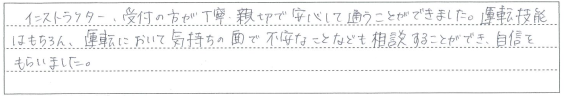 インストラクター、受付の方が丁寧、親切で安心して通うことができました。運転技能
はもちろん、運転において気持ちの面で不安なことなども相談することができ、自信を
もらいました。